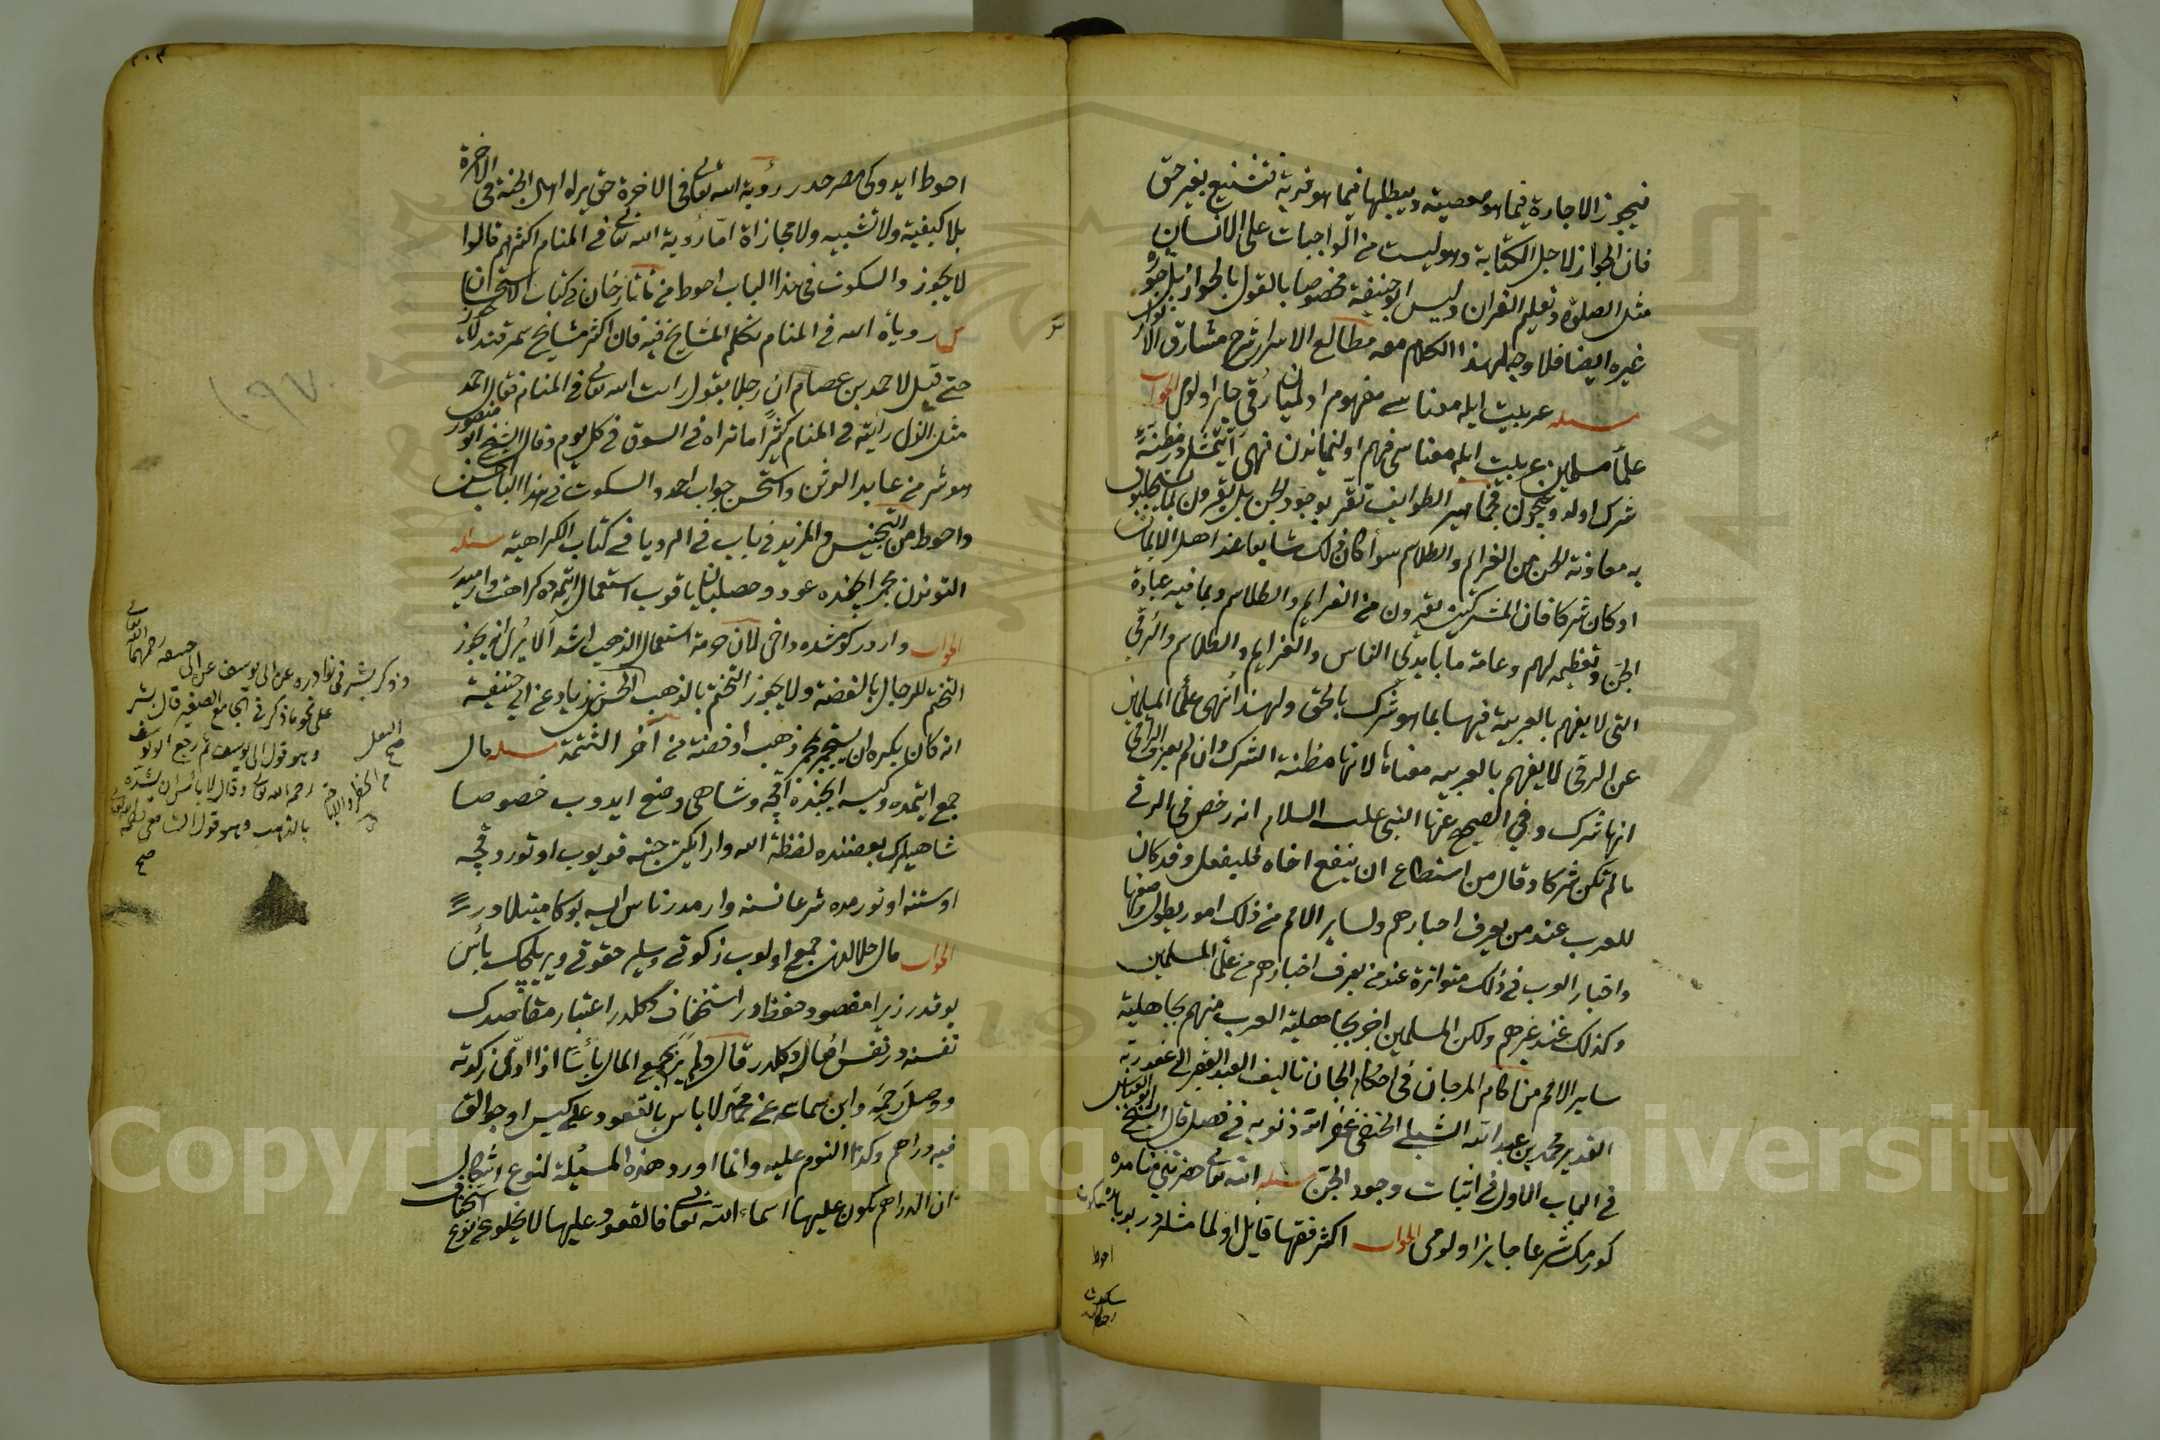 فيجوز الاجارة فيما هو معصية ويبطلها فيما هو قربة فتشنيع بغير حق
فان الجواز لاجل الكتابة وهو ليست من الواجبات على الانسان
مثل الصلوة وتعليم القران وليس ابو حنيفة مخصوصا بالقول بالجواز بل جوزه
غيره ايضا فلا وجه لهذا الكلام معه مطالع الاسرار شرح مشارق الانوار
مسئله عربيت ايله معناسى مفهوم اولميان رقى جايز اولورمى الجواب
علماء مسلمين عربيت ايله معناسى فهم اولنمياندن نهى ايتمشلدر مظنة
شرك اولدوغيچون فجماهير الطوايف تقر بوجود الجن بل يقرون بما يستجلبون
به معاونة الجن من العزايم والطلاسم سواء كان ذلك شايعا عند اهل الايمان
او كان شركا فان المشركين يقرون من العزايم والطلاسم وبما فيه عبادة
الجن وتعظيم لهم وعامة ما بايدى الناس والعزايم والطلاسم والرقى
التى لا يفهم بالعربية فيها بما هو شرك بالحق ولهذا نهى علماء المسلمين
عن الرقى لا يفهم بالعربيه معناها لانها مظنة الشرك وان لم يعرف الراقى
انها شرك وفي الصحيح عن النبى عليه السلام انه رخص فى الرقى
ما لم تكن شركا وقال من استطاع ان ينفع اخاه فليفعل وقد كان
للعرب عند من يعرف اخبارهم ولساير الامم من ذلك امور يطول وصفها
واخبار العرب فى ذلك متواترة عند من يعرف اخبارهم من علماء المسلمين
وكذلك عند غيرهم ولكن المسلمين اخبر بجاهلية العرب منهم بجاهلية
ساير الامم من اكام المرجان فى احكام الجان تاليف العبد الفقير الى عفو ربه
القدير محمد بن عبد الله الشبلى الحنفى غفر الله ذنوبه فى فصل قال الشيخ ابو العباس
فى الباب الاول فى اثبات وجود الجن مسئله الله تعالى حضرتنى منامده
كورمك شرعا جايز اولورمى الجواب اكثر فقها قايل اولمامشلدر بو بابده سكوت
احوط
احوط ايدوكى مصرحدر رؤية الله تعالى فى الاخرة حق يراه اهل الجنة فى الاخرة
بلا كيفية ولا تشبيه ولا مجازاة اما رؤية الله تعالى فى المنام اكثرهم قالوا
لا يجوز والسكوت فى هذا الباب احوط من تاتارخان فى كتاب الاستحسان
س رويأة الله فى المنام تكلم المشايخ فيه فان اكثر مشايخ سمرقند
حتى قيل لاحمد بن عصام ان رجلا يقول رايت الله تعالى فى المنام فقال احمد
مثل الذى رايته فى المنام كثيرا ما تراه فى السوق فى كل يوم وقال الشيخ ابو منصور
هو شر من عابد الوثن واستحسن جواب احمد والسكوت فى هذا الباب احسن
واحوط من التجنيس والمزيد فى باب فى الرويا فى كتاب الكراهية مسئله
التوندن مجمر ايچنده عود وحصلبان ياقوب استعمال ايتمده كراهت وارميدر
الجواب واردر كوشده داخى لان حرمة استعمال الذهب اشد الا يرى انه يجوز
التختم للرجال بالفضة ولا يجوز التختم بالذهب الحسن بن زياد عن ابى حنيفة
انه كان يكره ان يستجمر بمجمر ذهب او فضة من اخر التتمة مسئله مال
جمع ايتمده وكيسه ايچنده اقچه وشاهى وضع ايدوب خصوصا
شاهيلرك بعضنده لفظة الله وار ايكن جيبه قويوب اوتوروقچه
اوستنه اوتورمده شرعا نسنه وارمدر ناس ايسه بوكا مبتلادر
الجواب مال حلالدن جمع اولوب زكوتى وساير حقوقى ويريلجك بأس
يوقدر زيرا مقصود حفظدر استخفاف دكلدر اعتبار مقاصدك
نفسنه در نفس افعاله دكلدر قال ولم ير بجمع المال بأسا اذا ادى زكوته
ووصل رحمه وابن سماعه عن محمد لا باس بالقعود على كيس او جوالق
فيه دراهم وكذا النوم عليه وانما اورد هذه المسئلة لنوع اشكال
ان الدراهم يكون عليها اسماء الله تعالى فالقعود عليها لا يخلو عن نوع استخفاف
وذكر بشر فى نوادره عن ابى يوسف عن ابى حنيفه رحمهما الله تعالى
على نحو ما ذكر فى الجامع الصغير قال بشر
وهو قول ابى يوسف ثم رجع ابو يوسف
رحمه الله تعالى وقال لا بأس ان يشده
بالذهب وهو قول الشافعى رحمه الله تعالى
صح